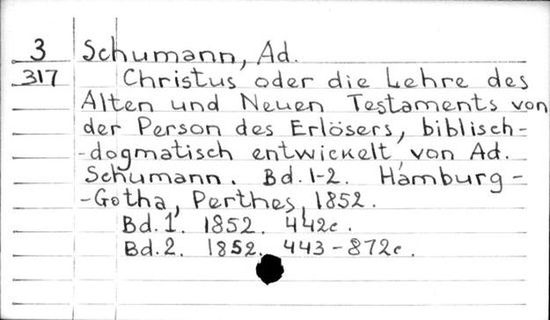 3 Schumann, Ad.
317 Christus oder die Lehre des
Alten und Neuen Testaments von
der Person des Erlösers, biblisch-
-dogmatisch entwickelt, von Ad.
Schumann. Bd. 1-2. Hamburg-
-Gotha, Perthes, 1852.
Bd. 1. 1852. 442c.
Bd. 2. 1852. 443-872c.